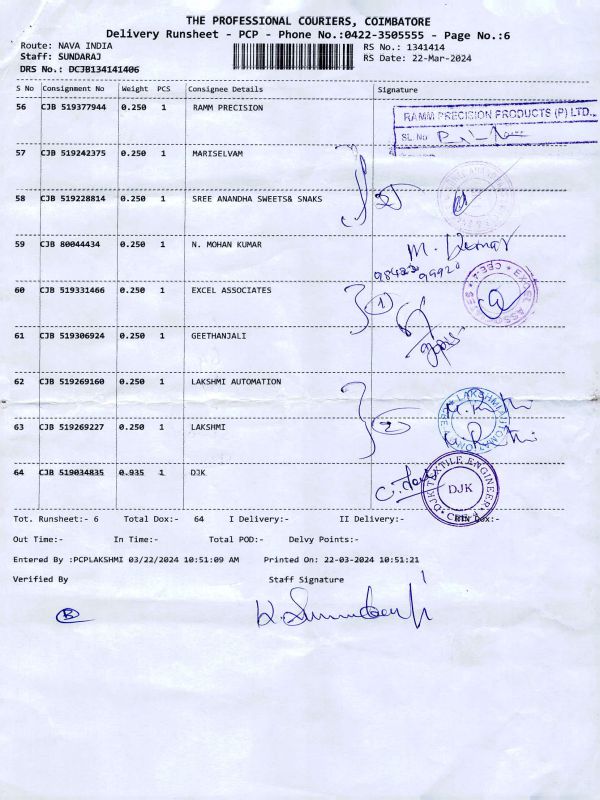 THE PROFESSIONAL COURIERS, COIMBATORE
Delivery Runsheet - PCP - Phone No.:0422-3505555 - Page No.:6
Route: NAVA INDIA RS No.: 1341414
Staff: SUNDARAJ RS Date: 22-Mar-2024
DRS No.: DCJB134141406
S No Consignment No Weight PCS Consignee Details Signature
56 CJB 519377944 0.250 1 RAMM PRECISION
RAMM PRECISION PRODUCTS (P) LTD.,
SL No
57 CJB 519242375 0.250 1 MARISELVAM
58 CJB 519228814 0.250 1 SREE ANANDHA SWEETS& SNAKS
59 CJB 80044434 0.250 1 N. MOHAN KUMAR
M. Kumar
60 CJB 519331466 0.250 1 EXCEL ASSOCIATES 1
EXCEL ASSOCIATES CBE-4
61 CJB 519306924 0.250 1 GEETHANJALI
62 CJB 519269160 0.250 1 LAKSHMI AUTOMATION
63 CJB 519269227 0.250 1 LAKSHMI 2
64 CJB 519034835 0.935 1 DJK
DJK TEXTILE ENGINEER
DJK
Tot. Runsheet:- 6 Total Dox:- 64 I Delivery:- II Delivery:-
Out Time:- In Time:- Total POD:- Delvy Points:-
Entered By :PCPLAKSHMI 03/22/2024 10:51:09 AM Printed On: 22-03-2024 10:51:21
Verified By Staff Signature
B